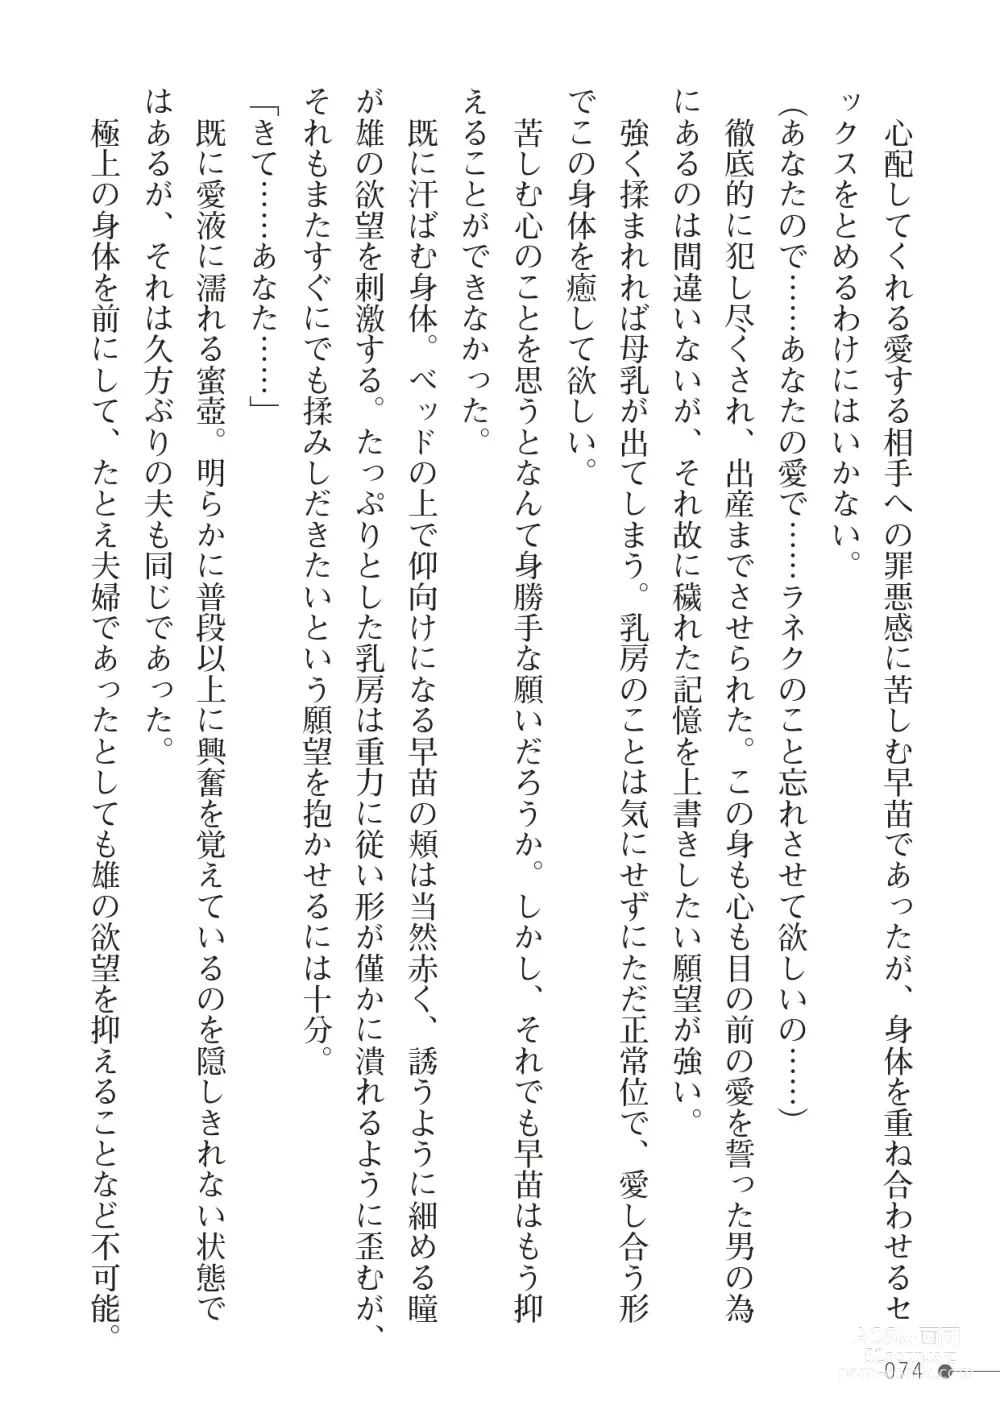 心配してくれる愛する相手への罪悪感に苦しむ早苗であったが、身体を重ね合わせるセ
ックスをとめるわけにはいかない。
（あなたので……あなたの愛で……ラネクのこと忘れさせて欲しいの……）
　徹底的に犯し尽くされ、出産までさせられた。この身も心も目の前の愛を誓った男の為
にあるのは間違いないが、それ故に穢れた記憶を上書きしたい願望が強い。
　強く揉まれれば母乳が出てしまう。乳房のことは気にせずにただ正常位で、愛し合う形
でこの身体を癒して欲しい。
　苦しむ心のことを思うとなんて身勝手な願いだろうか。しかし、それでも早苗はもう抑
えることができなかった。
　既に汗ばむ身体。ベッドの上で仰向けになる早苗の頬は当然赤く、誘うように細める瞳
が雄の欲望を刺激する。たっぷりとした乳房は重力に従い形が僅かに潰れるように歪むが、
それもまたすぐにでも揉みしだきたいという願望を抱かせるには十分。
「きて……あなた……」
　既に愛液に濡れる蜜壺。明らかに普段以上に興奮を覚えているのを隠しきれない状態で
はあるが、それは久方ぶりの夫も同じであった。
　極上の身体を前にして、たとえ夫婦であったとしても雄の欲望を抑えることなど不可能。
074